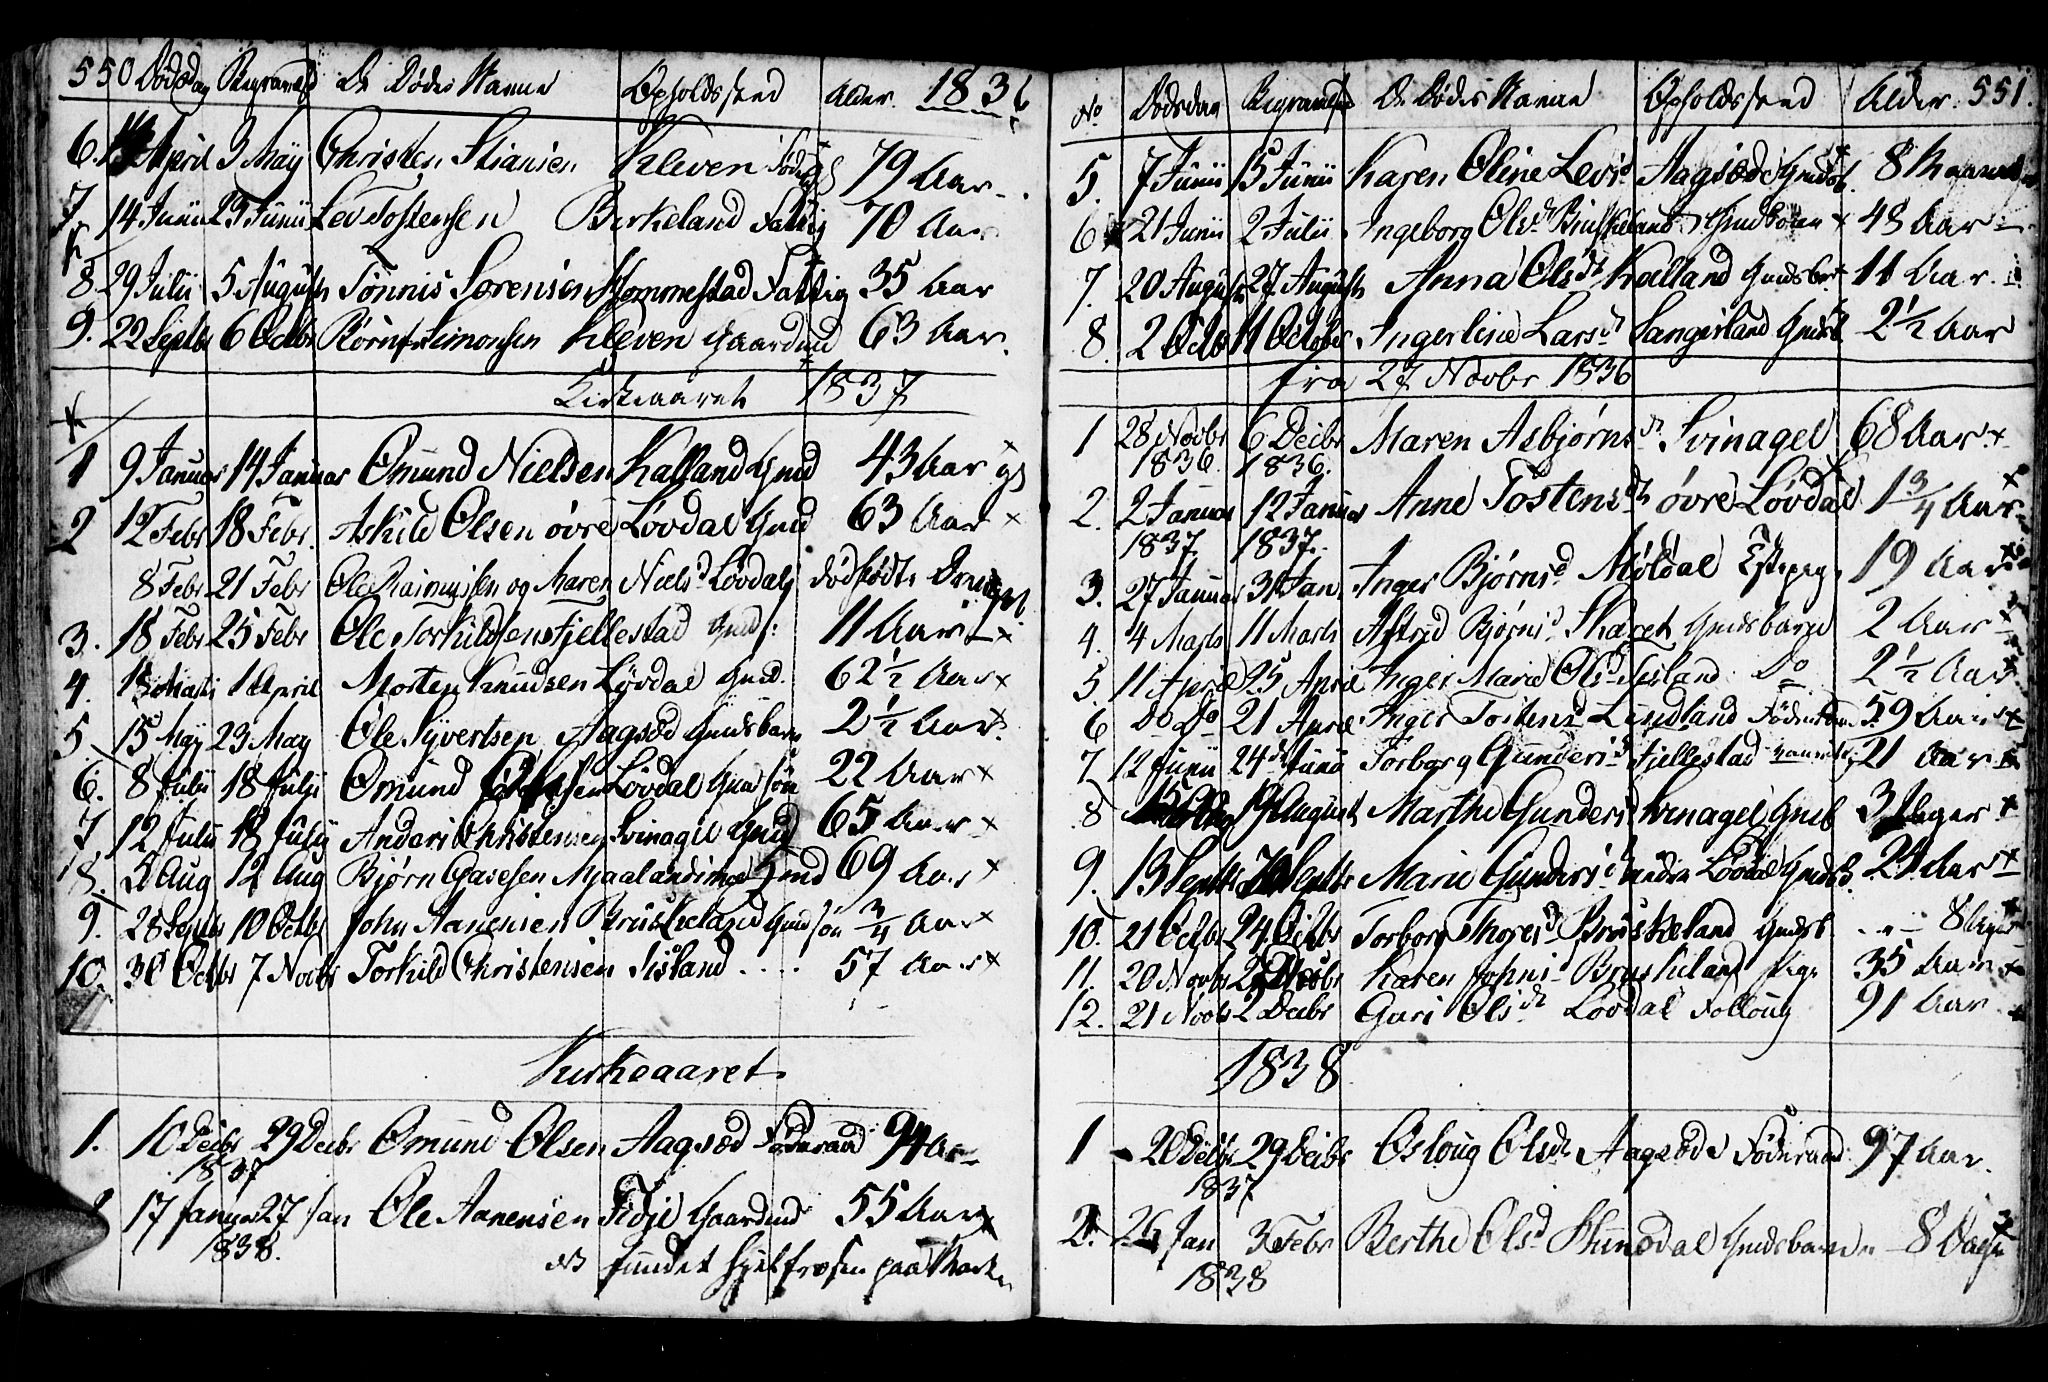 550 Dødsdag Begravels De Dødes Navne Opholdssted Alder. 1836
6. April 3 May Christen Stiansen Kleven 79 Aar
7 14 Junii 23 Junii Lev Tostensen Birkeland Fattig 70 Aar
8 29 Julii 5 August Tönnis Sörensen Hommestad Fattig 35 Aar
9. 22 Septbr 6 Octbr Børn Simonsen Kleven Gaardmd 63 Aar.
Kirkeaaret 1837
1 9 Januar 14 Januar Omund Nielsen Kalland Gmd 43 Aar
2 12 Febr 18 Febr. Askild Olsen övre Lövdal Gmd 63 Aar
8 Febr 21 Febr Ole Rasmussen og Maren Niels d Lövdals dödfödte
3. 18 Febr 25 Febr Ole Torkildsen Fjellestad 11 Aar
4. Marti 1 April Morten Knudsen Lövdal Gmd. 62½ Aar
5 15 May 23 May Ole Syvertsen Aagsöd Gmdsbarn 2½ Aar
6. 8 Julii 18 Julii Omund Lövdal Gmd sön 22 Aar
7 12 Julii 18 Julii Anders Christensen Svinagel Gmd 65 Aar
8. 5 Aug 12 Aug Bjørn Gmd 69 Aar
9. 28 Septbr 10 Octbr John Aanensen Bruskeland Gmd sön ¾ Aar
10. 30 Octbr 7 Novbr Torkild Christensen Sisland .... 57 Aar
Kirkeaaret
1. 10 Decbr 29 Decbr Omund Olsen Aagsöd Föderaad 94 Aar
1837
17 Januar 27 Jan Ole Aanensen Fidje Gaardmd 55 Aar
1838.
NB fundet ihjelfrosen paa Marken
No Dødsdag Begravelse De Dødes Navne Opholdssted Alder. 551.
5. 7 Junii 15 Junii Karen Oline Levid Aagsöd 8 Maaned
6 21 Junii 2 Julii Ingeborg Olsd Bruskeland 43 Aar
7. 20 August 27 August Anna Olsdt Kalland Gmdsbrn 11 Aar
8. 2 Octb 11 October Ingerline Larsd Sangesland Gmdsb 2½ Aar
fra 27 Novbr 1836
1 28 Novbr 6 Decbr Maren Asbjørnsdt Svinagel 68 Aar
1836. 1836.
2. 2 Januar 12 Januar Anne Tostensdt övre Lövdal 1¾ Aar
1837. 1837.
3. 27 Januar 31 Jan Inger Bjørnsd Möldal 19 Aar
4. 4 Marts 11 Marts Astrid Bjørnsd Skaret Gmdsbarn 2 Aar
5 11 April 25 April Inger Marie Olsd Sisland Do 2½ Aar
6 Do Do 21 April Inger Tostensd Lindland 59 Aar
7 12 Junii 24 Junii Torborg Gundersd Fjellestad 21 Aar
8 19 August Marthe Gundersd Svinagel Gmdb 3 Uger
9. 13 Septbr Septbr Marie Gundersd Lövdal Gmdsb. Aar
10. 21 Octbr 24 Octbr Torborg Thoresd Bruskeland Gmdsb 8 Uger
11. 20 Novbr Novbr Karen Johnsd Bruskeland Pige 35 Aar
12. 21 Novbr 2 Decbr Guri Olsdt Lövdal 91 Aar
1838
1 20 Decbr 29 Decbr Osloug Olsdt Aagsöd Föderaad 97 Aar.
1837
2. 26 Jan 3 Febr Berthe Olsd Gmdsbarn 8 Dage
1838